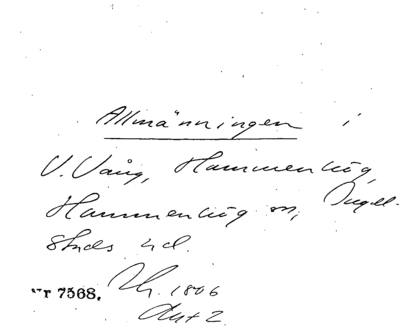 Allmänningen i
V. Vång, Hammenhög,
Hammenhög sn, Ingel-
stads hd.
nr 7568. Lh. 1806
Akt 2.